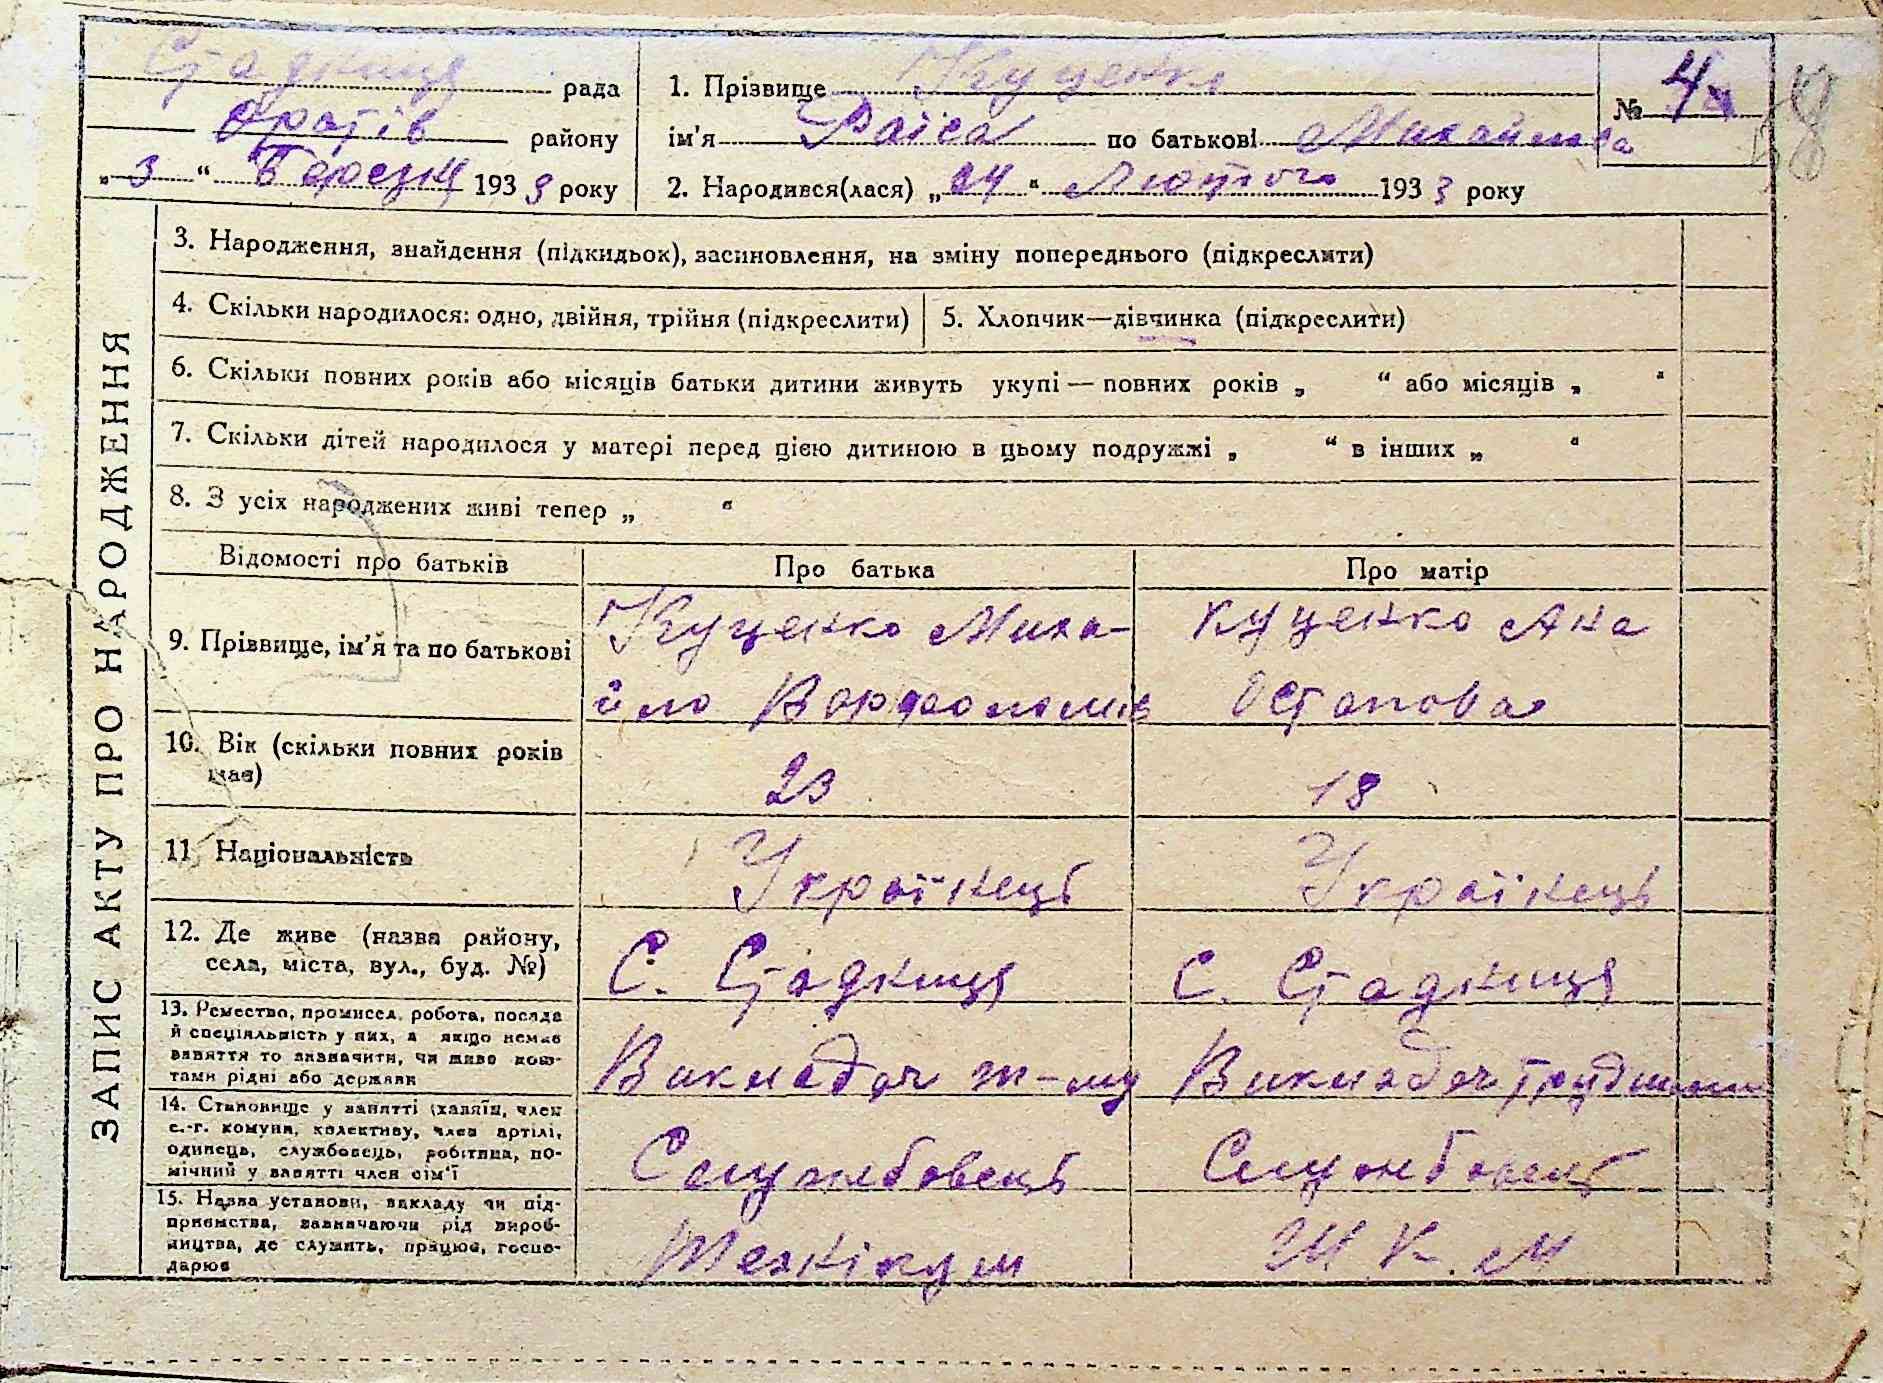 Стадниця рада
Оратів району
„ 3 “ Березня 1933 року
1. Прізвище Куценко
ім'я Раїса по батькові Михайлова
2. Народився(лася) „ 24 “ Лютого 1933 року
№ 4
ЗАПИС АКТУ ПРО НАРОДЖЕННЯ
3. Народження, знайдення (підкидьок), засиновлення, на зміну попереднього (підкреслити)
4. Скільки народилося: одно, двійня, трійня (підкреслити)
5. Хлопчик—дівчинка (підкреслити)
6. Скільки повних років або місяців батьки дитини живуть укупі — повних років „ “ або місяців „ “
7. Скільки дітей народилося у матері перед цією дитиною в цьому подружжі „ “ в інших „ “
8. З усіх народжених живі тепер „ “
Відомості про батьків
Про батька
Про матір
9. Прізвище, ім'я та по батькові
Куценко Миха-
йло Ворфоломів
Куценко Ана
Остапова
10. Вік (скільки повних років
має)
23
18
11. Національність
Українець
Українець
12. Де живе (назва району,
села, міста, вул., буд. №)
С. Стадниця
С. Стадниця
13. Ремество, промисел, робота, посада
й спеціяльність у них, а якщо немає
заняття то визначити, чи живе кош-
тами рідні або держави
Викладач т-му
Викладач трудшколи
14. Становище у занятті (хазяїн, член
с.-г. комуни, колективу, член артілі,
одинець, службовець, робітник, по-
мічний у занятті член сім'ї
Службовець
Службовець
15. Назва установи, закладу чи під-
приємства, зазначаючи рід вироб-
ництва, де служить, працює, госпо-
дарює
Технікум
Ш. К. М